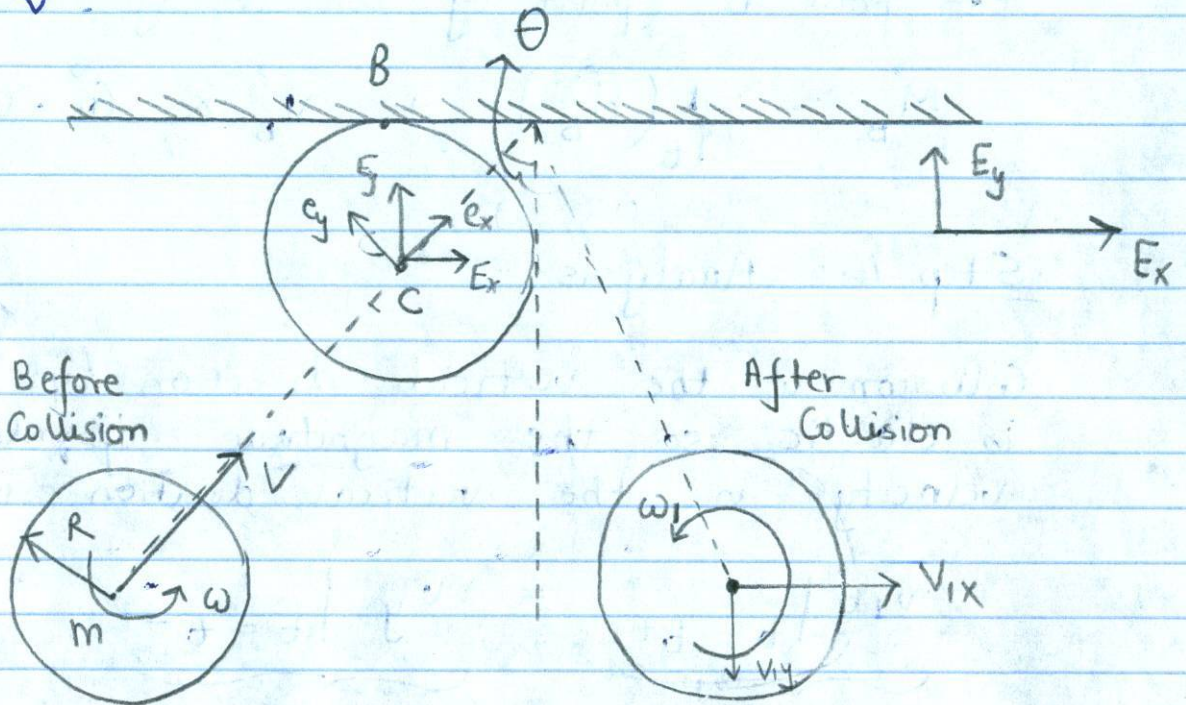 θ
B
E_y
E_y
e_y
e_x
E_x
E_x
C
Before
Collision
After
Collision
V
R
ω
m
ω_1
V_1x
V_1y